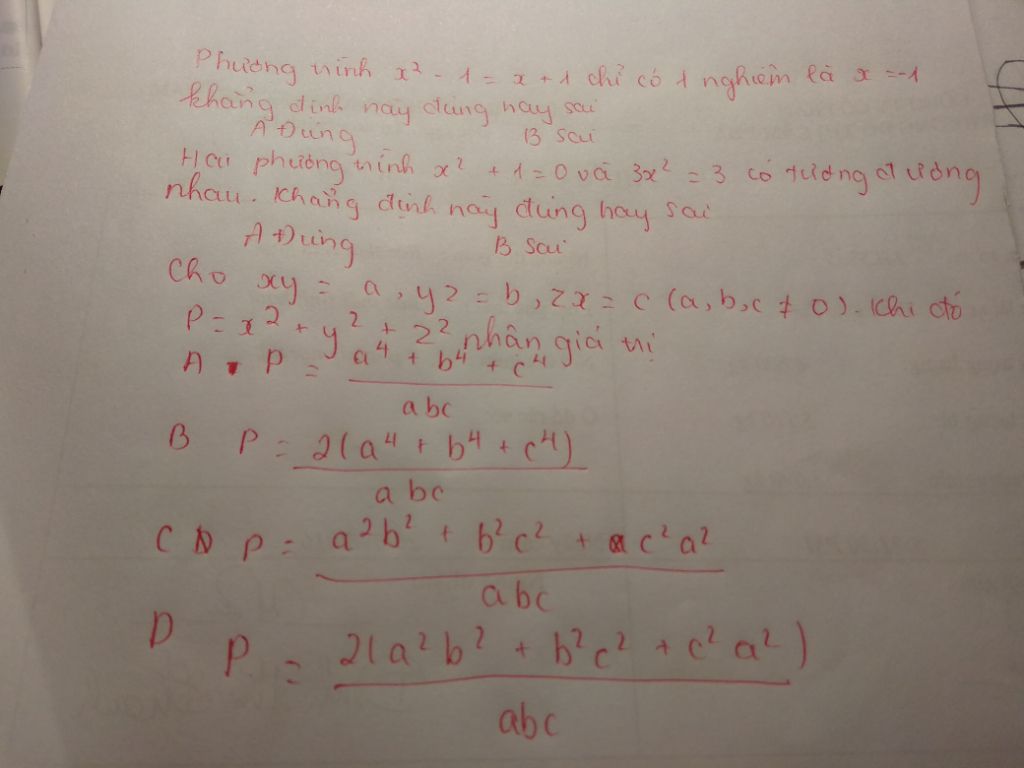 Phương trình x² - 1 = x + 1 chỉ có 1 nghiệm là x = -1
khẳng định này đúng hay sai
A Đúng B sai
Hai phương trình x² + 1 = 0 và 3x² = 3 có tương đương
nhau. Khẳng định này đúng hay sai
A Đúng B sai
Cho xy = a, yz = b, zx = c (a, b, c ≠ 0). Khi đó
P = x² + y² + z² nhận giá trị
A P = a⁴ + b⁴ + c⁴
abc
B P = 2(a⁴ + b⁴ + c⁴)
abc
C P = a²b² + b²c² + c²a²
abc
D P = 2(a²b² + b²c² + c²a²)
abc